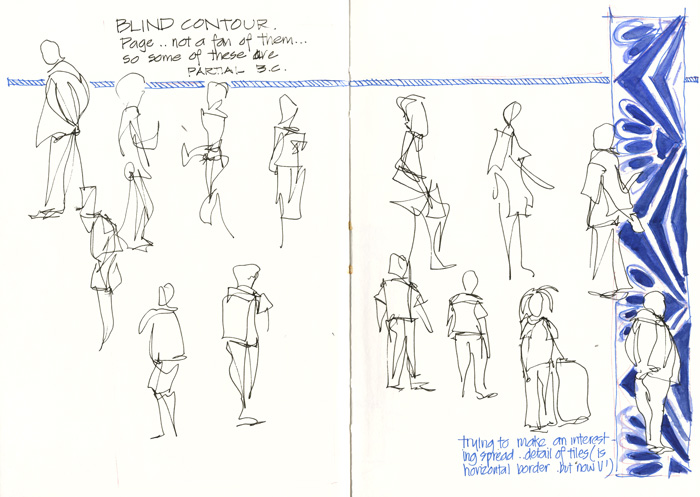 BLIND CONTOUR.
Page .. not a fan of them...
so some of these are
PARTIAL B.C.
trying to make an interest-
ing spread .. detail of tiles (is
horizontal border .. but now V!)